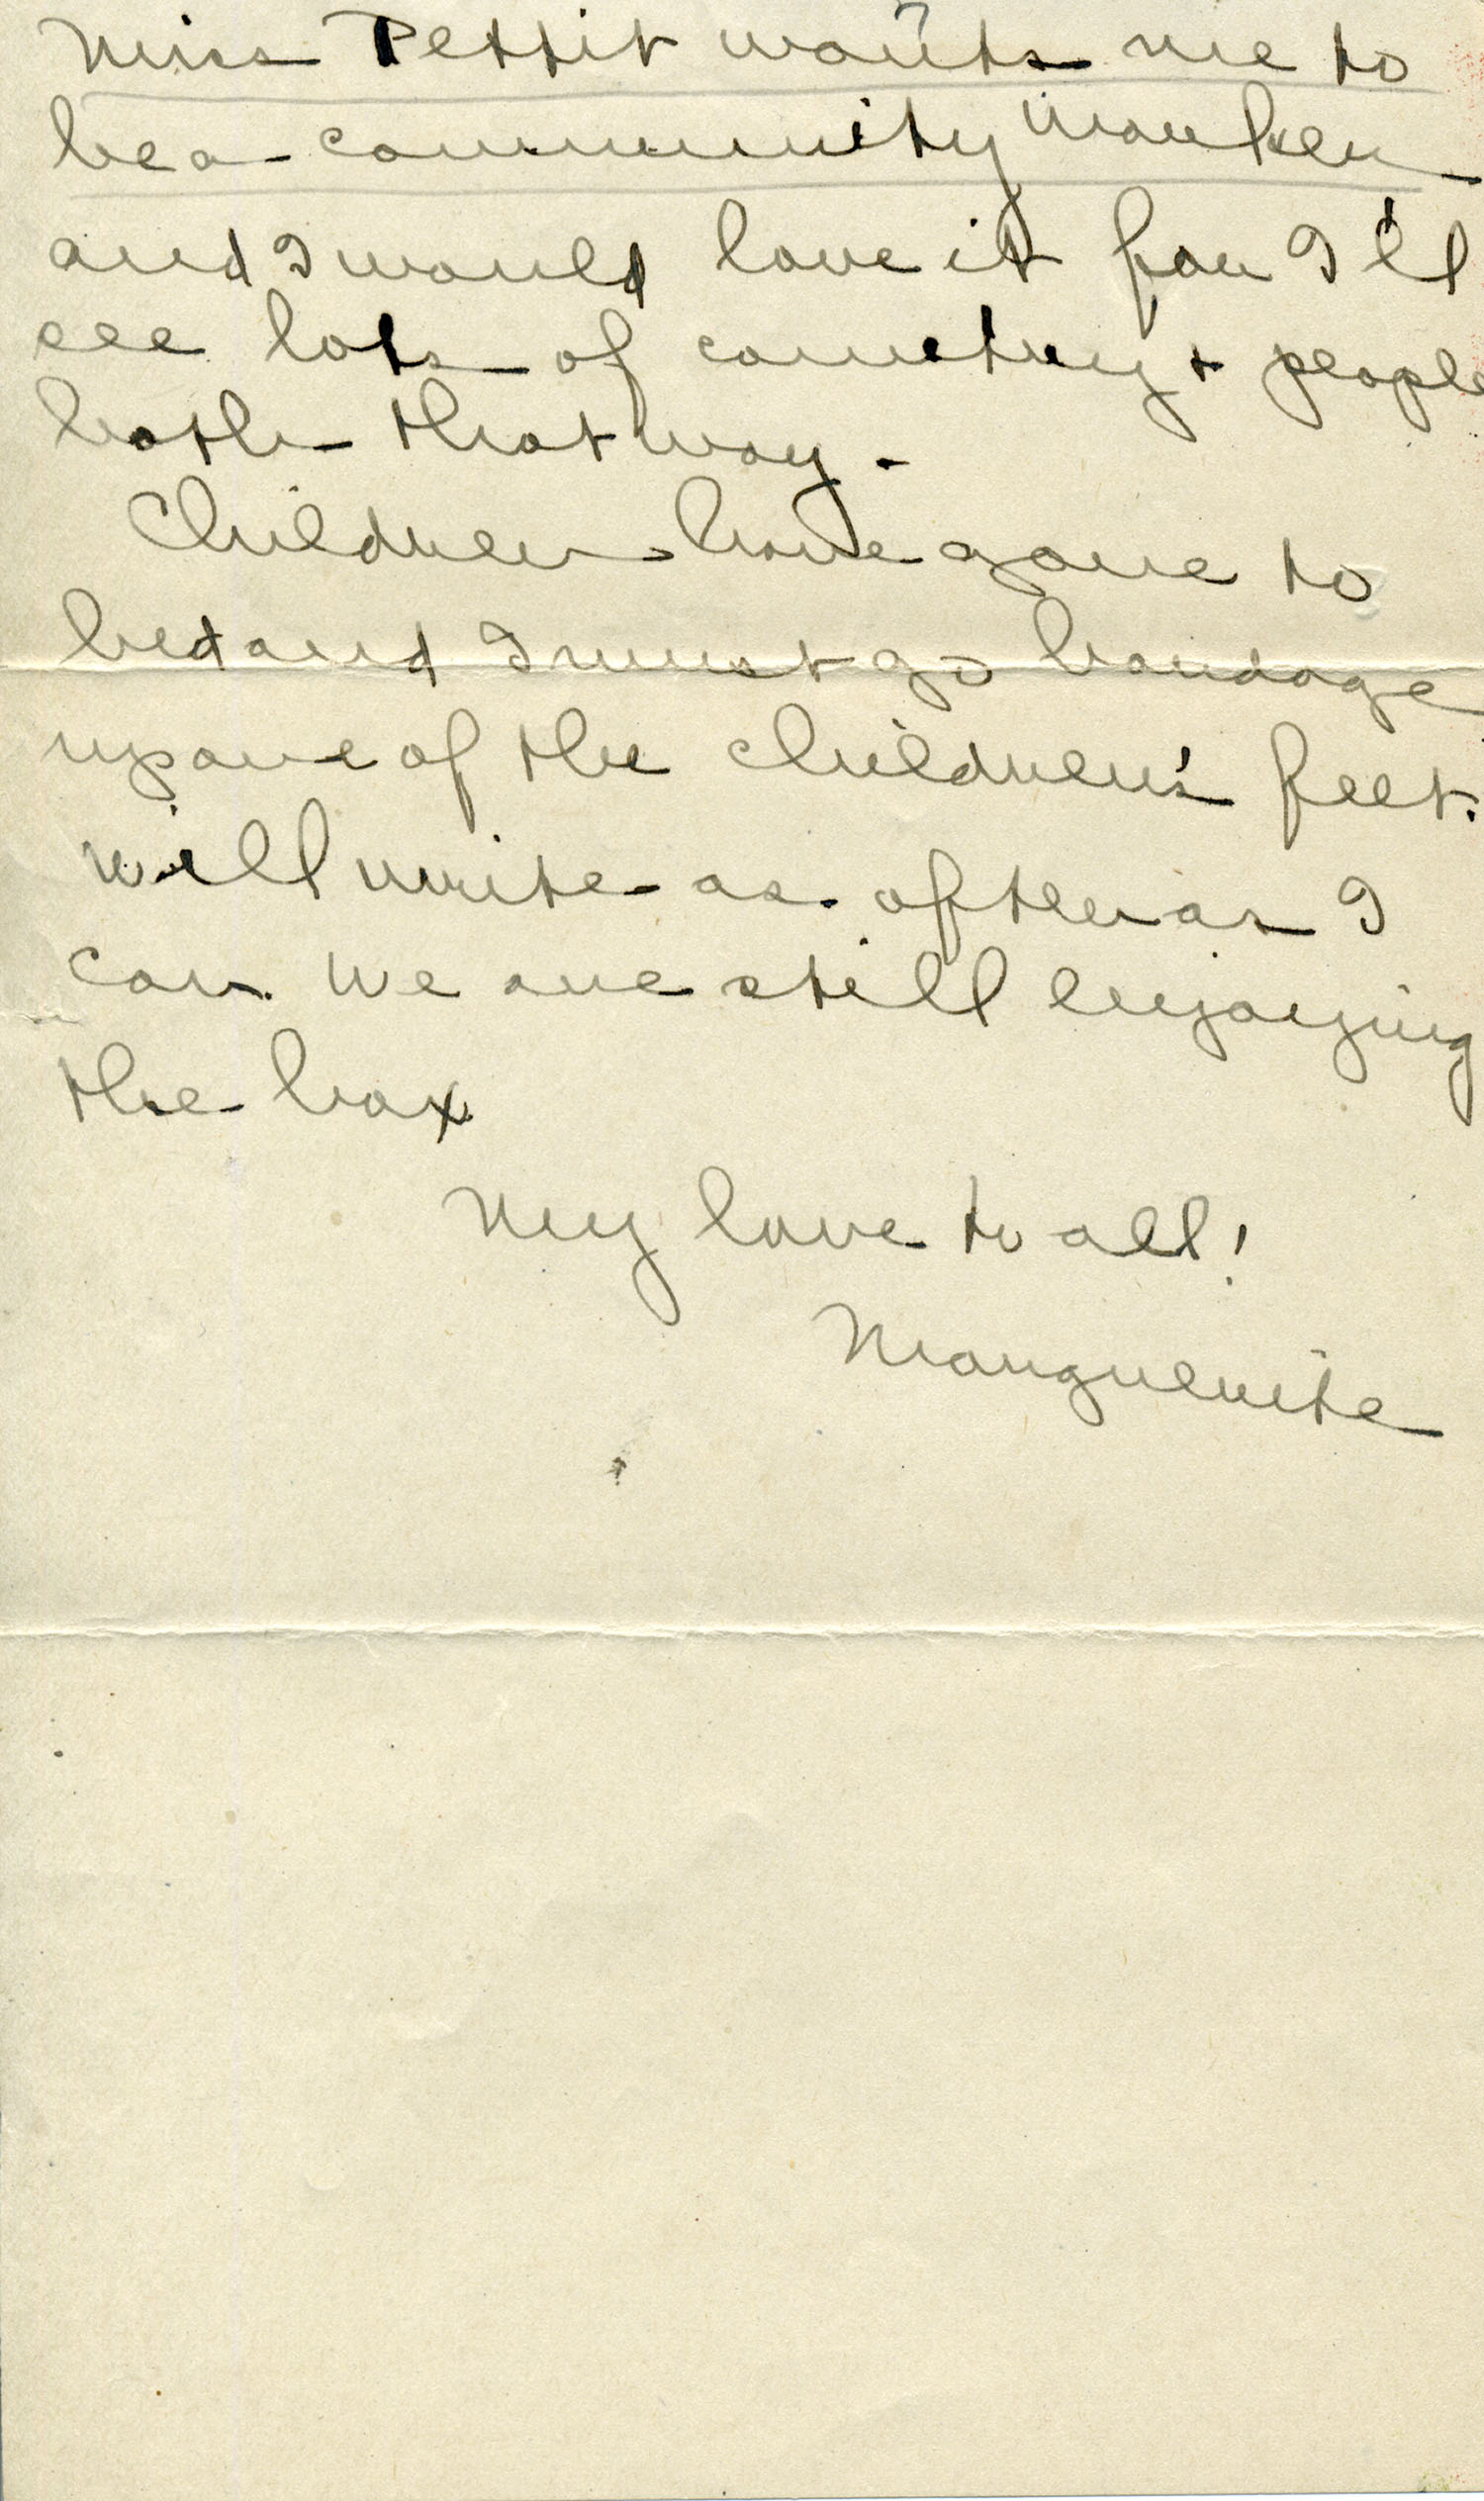 Miss Pettit wants me to
be a community worker
and I would love it for I'll
see lots of country + people
both that way.
Children have gone to
bed and I must go bandage
up one of the children's feet.
Will write as often as I
can. We are still enjoying
the box
My love to all!
Marguerite